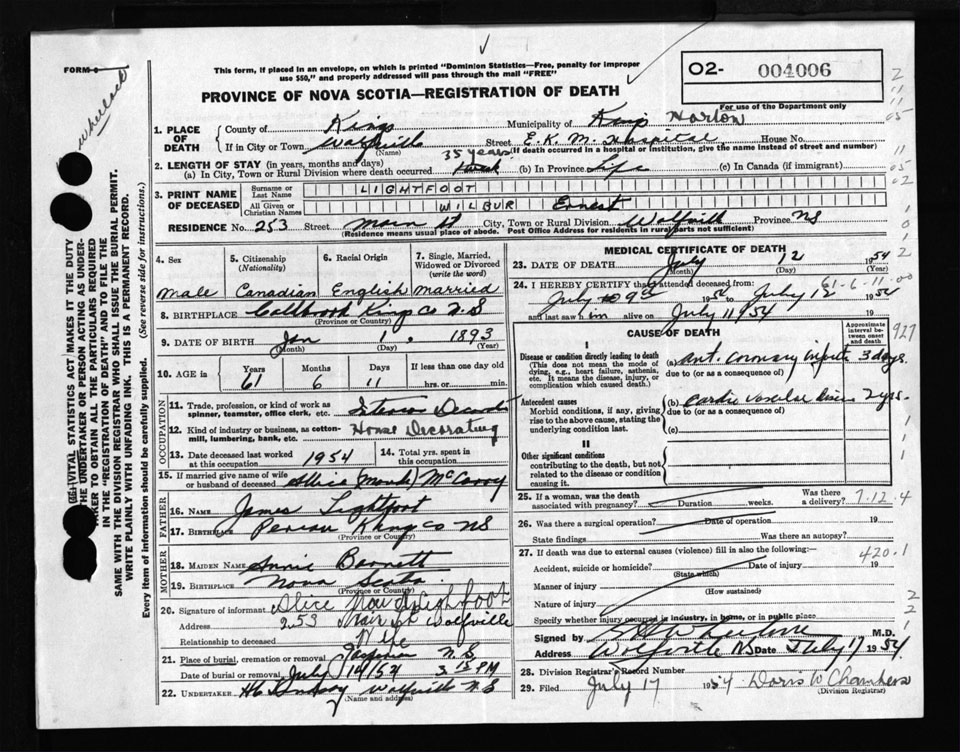 FORM 6
This form, if placed in an envelope, on which is printed "Dominion Statistics—Free, penalty for improper
use $50," and properly addressed will pass through the mail "FREE"
O2- 004006
PROVINCE OF NOVA SCOTIA—REGISTRATION OF DEATH
For use of the Department only
1. PLACE OF DEATH
County of Kings Municipality of Kings Horton
If in City or Town Wolfville (Name) Street E.K.M. Hospital House No.
(If death occurred in a hospital or institution, give the name instead of street and number)
2. LENGTH OF STAY (in years, months and days)
(a) In City, Town or Rural Division where death occurred 35 years (b) In Province Life (c) In Canada (if immigrant)
3. PRINT NAME OF DECEASED
Surname or Last Name LIGHTFOOT
All Given or Christian Names WILBUR Ernest
RESIDENCE No. 253 Street Main St City, Town or Rural Division Wolfville Province NS
(Residence means usual place of abode. Post Office Address for residents in rural parts not sufficient)
4. Sex
Male
5. Citizenship (Nationality)
Canadian
6. Racial Origin
English
7. Single, Married, Widowed or Divorced (write the word)
Married
8. BIRTHPLACE Kings Co N.S
(Province or Country)
9. DATE OF BIRTH Jan 1. 1893
(Month) (Day) (Year)
10. AGE in Years 61 Months 6 Days 11 If less than one day old
hrs. or min.
OCCUPATION
11. Trade, profession, or kind of work as spinner, teamster, office clerk, etc.
12. Kind of industry or business, as cotton-mill, lumbering, bank, etc. House Decorating
13. Date deceased last worked at this occupation 1954
14. Total yrs. spent in this occupation
15. If married give name of wife or husband of deceased
FATHER
16. NAME James Lightfoot
17. BIRTHPLACE Kings Co NS
(Province or Country)
MOTHER
18. MAIDEN NAME Annie Barnett
19. BIRTHPLACE Nova Scotia
(Province or Country)
20. Signature of informant Alice Lightfoot
Address 253 Main St Wolfville
Relationship to deceased Wife
21. Place of burial, cremation or removal N.S
Date of burial or removal July 14/54 PM
22. UNDERTAKER Wolfville N.S
(Name and address)
MEDICAL CERTIFICATE OF DEATH
23. DATE OF DEATH July 12 1954
(Month) (Day)
24. I HEREBY CERTIFY that I attended deceased from 61-6-11-00
July 9 to July 12 1954
and last saw him alive on July 11 1954
CAUSE OF DEATH
Approximate interval between onset and death
927
I
Disease or condition directly leading to death
(This does not mean the mode of dying, e.g., heart failure, asthenia, etc. It means the disease, injury, or complication which caused death.)
(a) Ant. Coronary 3 days.
due to (or as a consequence of)
Antecedent causes
Morbid conditions, if any, giving rise to the above cause, stating the underlying condition last.
(b) Cardio Vascular 2 yrs.
due to (or as a consequence of)
(c)
II
Other significant conditions
contributing to the death, but not related to the disease or condition causing it.
25. If a woman, was the death associated with pregnancy? Duration weeks. Was there a delivery? 7.12.4
26. Was there a surgical operation? Date of operation 19
State findings Was there an autopsy?
27. If death was due to external causes (violence) fill in also the following:— 420.1
Accident, suicide or homicide? Date of injury 19
(State which)
Manner of injury
(How sustained)
Nature of injury
Specify whether injury occurred in industry, in home, or in public place
Signed by M.D.
Address Wolfville NS Date July 17 1954
28. Division Registrar's Record Number
29. Filed July 17 1954 Doris W Chambers
(Division Registrar)
(See reverse side for instructions.)
SAME WITH THE DIVISION REGISTRAR WHO SHALL ISSUE THE BURIAL PERMIT.
WRITE PLAINLY WITH UNFADING INK. THIS IS A PERMANENT RECORD.
Every item of information should be carefully supplied.